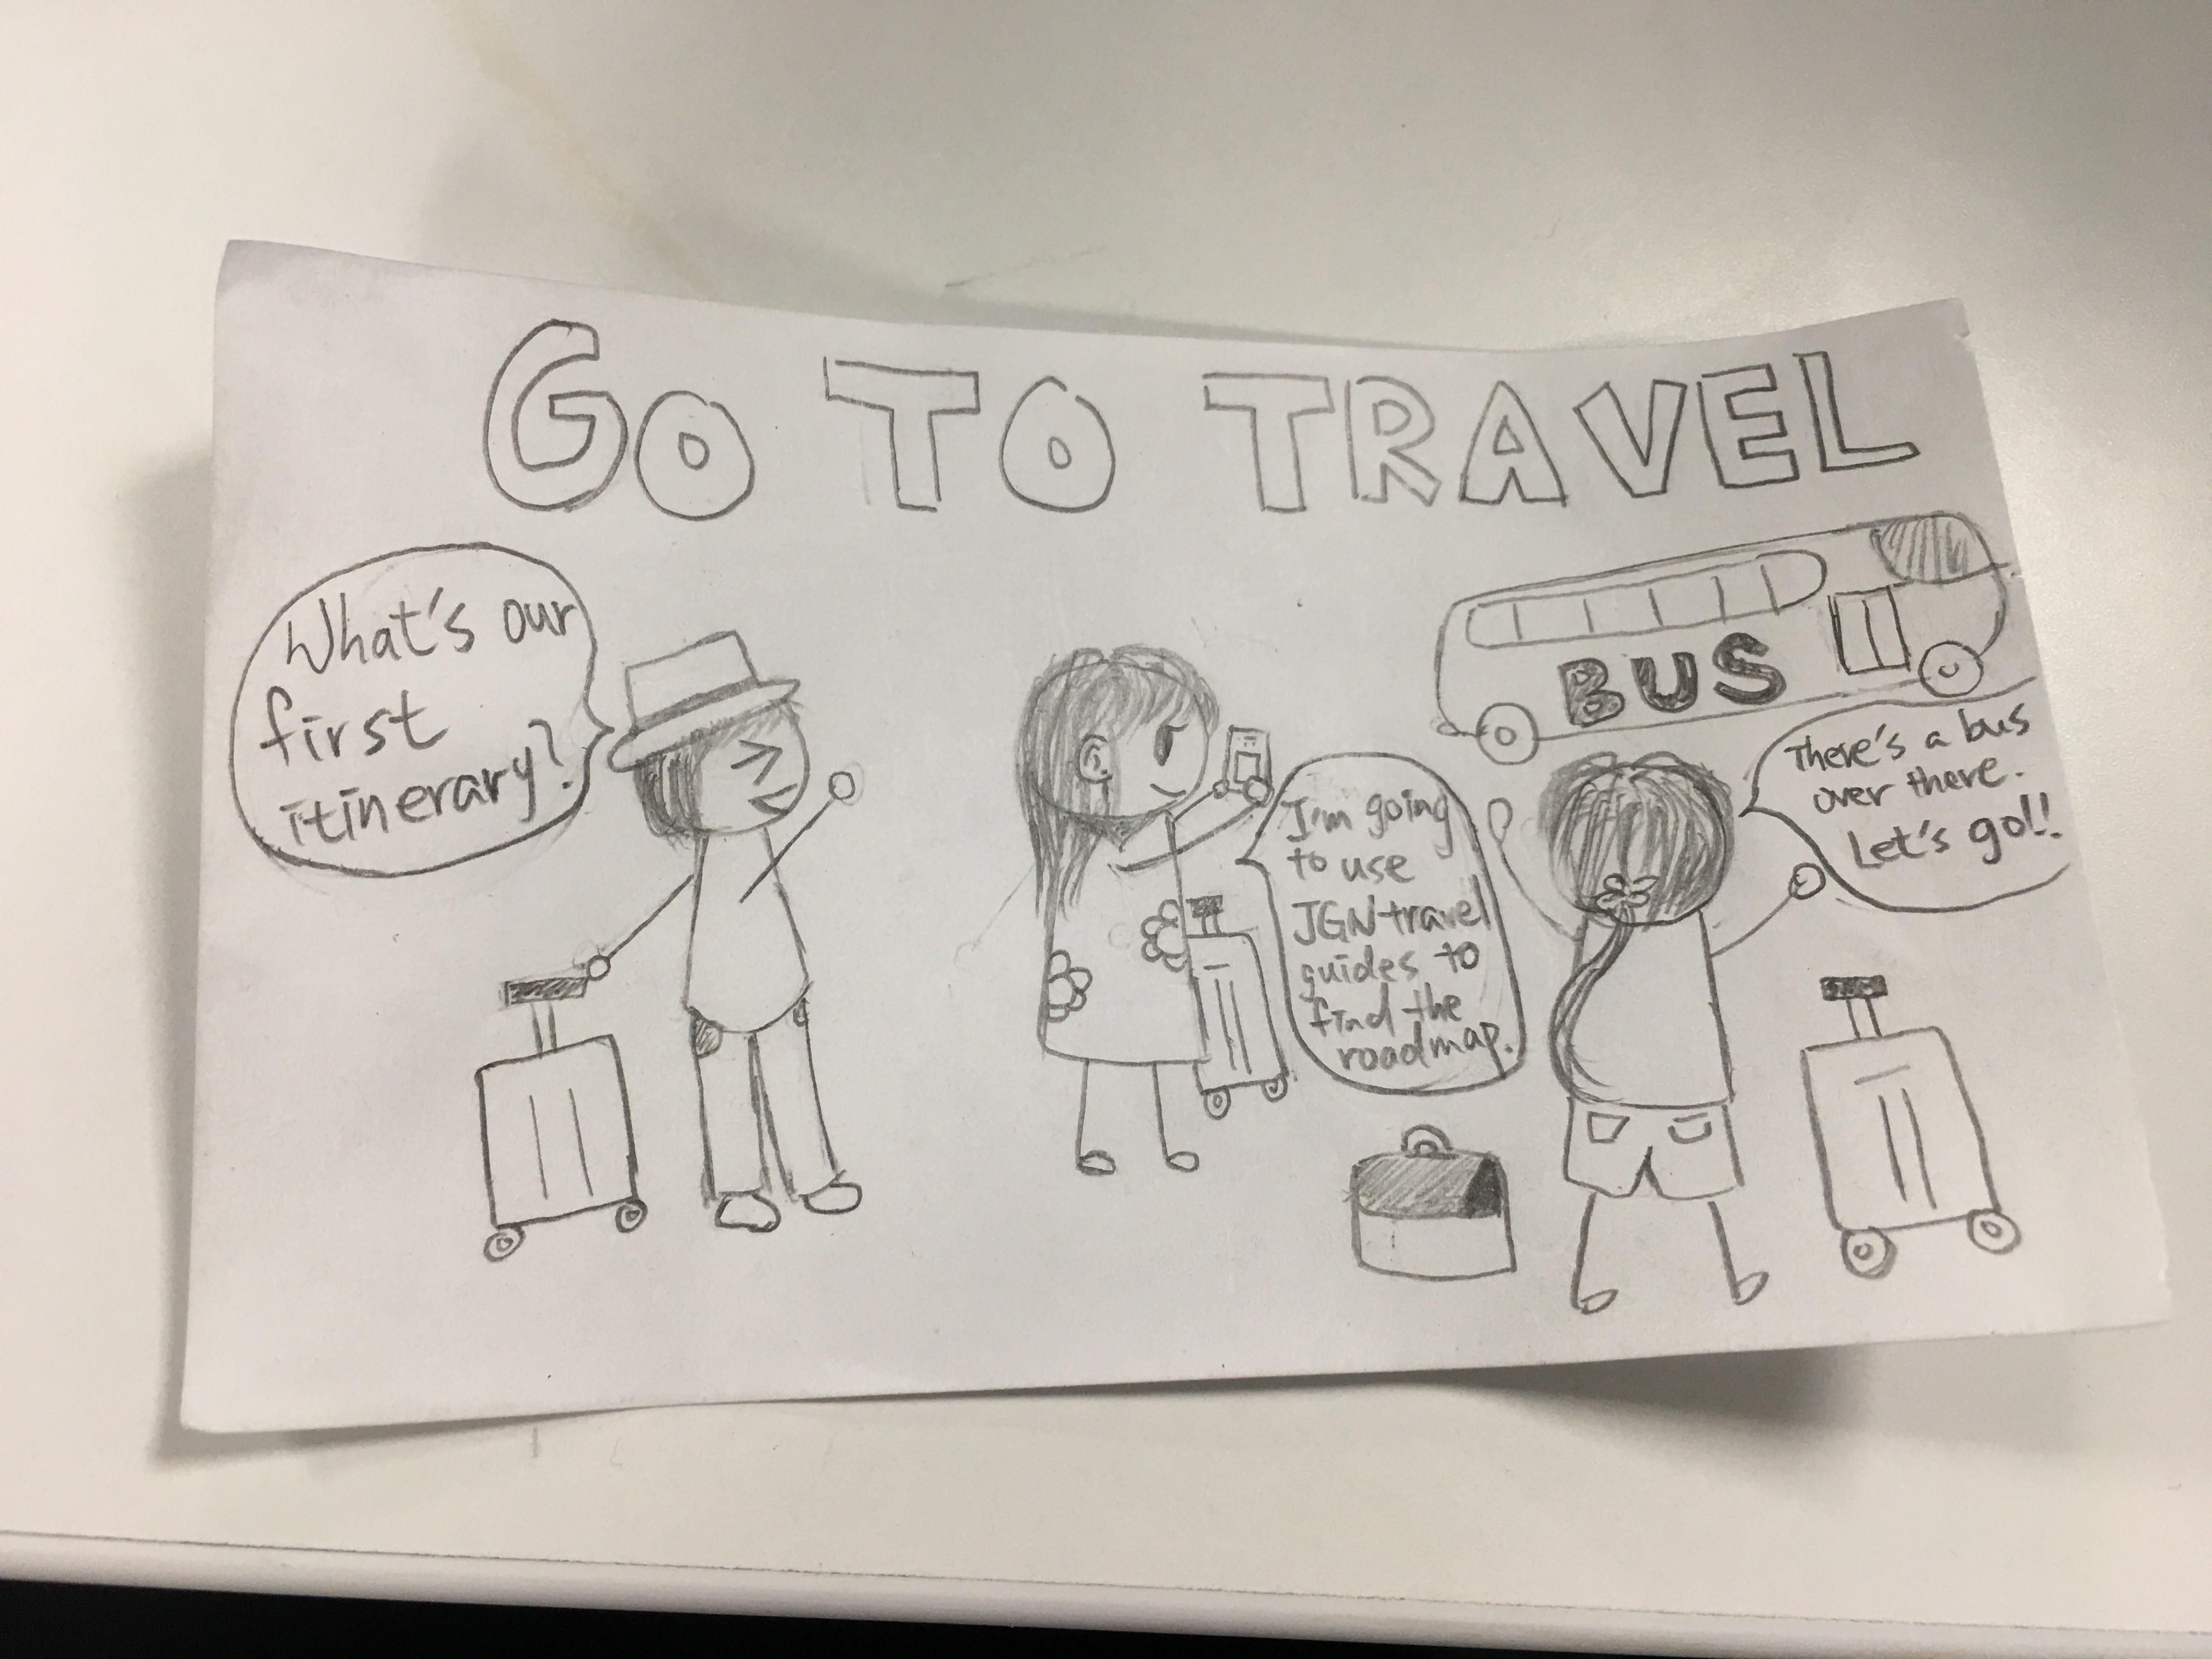 Go TO TRAVEL
What's our
first
itinerary?
I'm going
to use
JGN travel
guides to
find the
roadmap.
BUS
There's a bus
over there.
Let's go!!